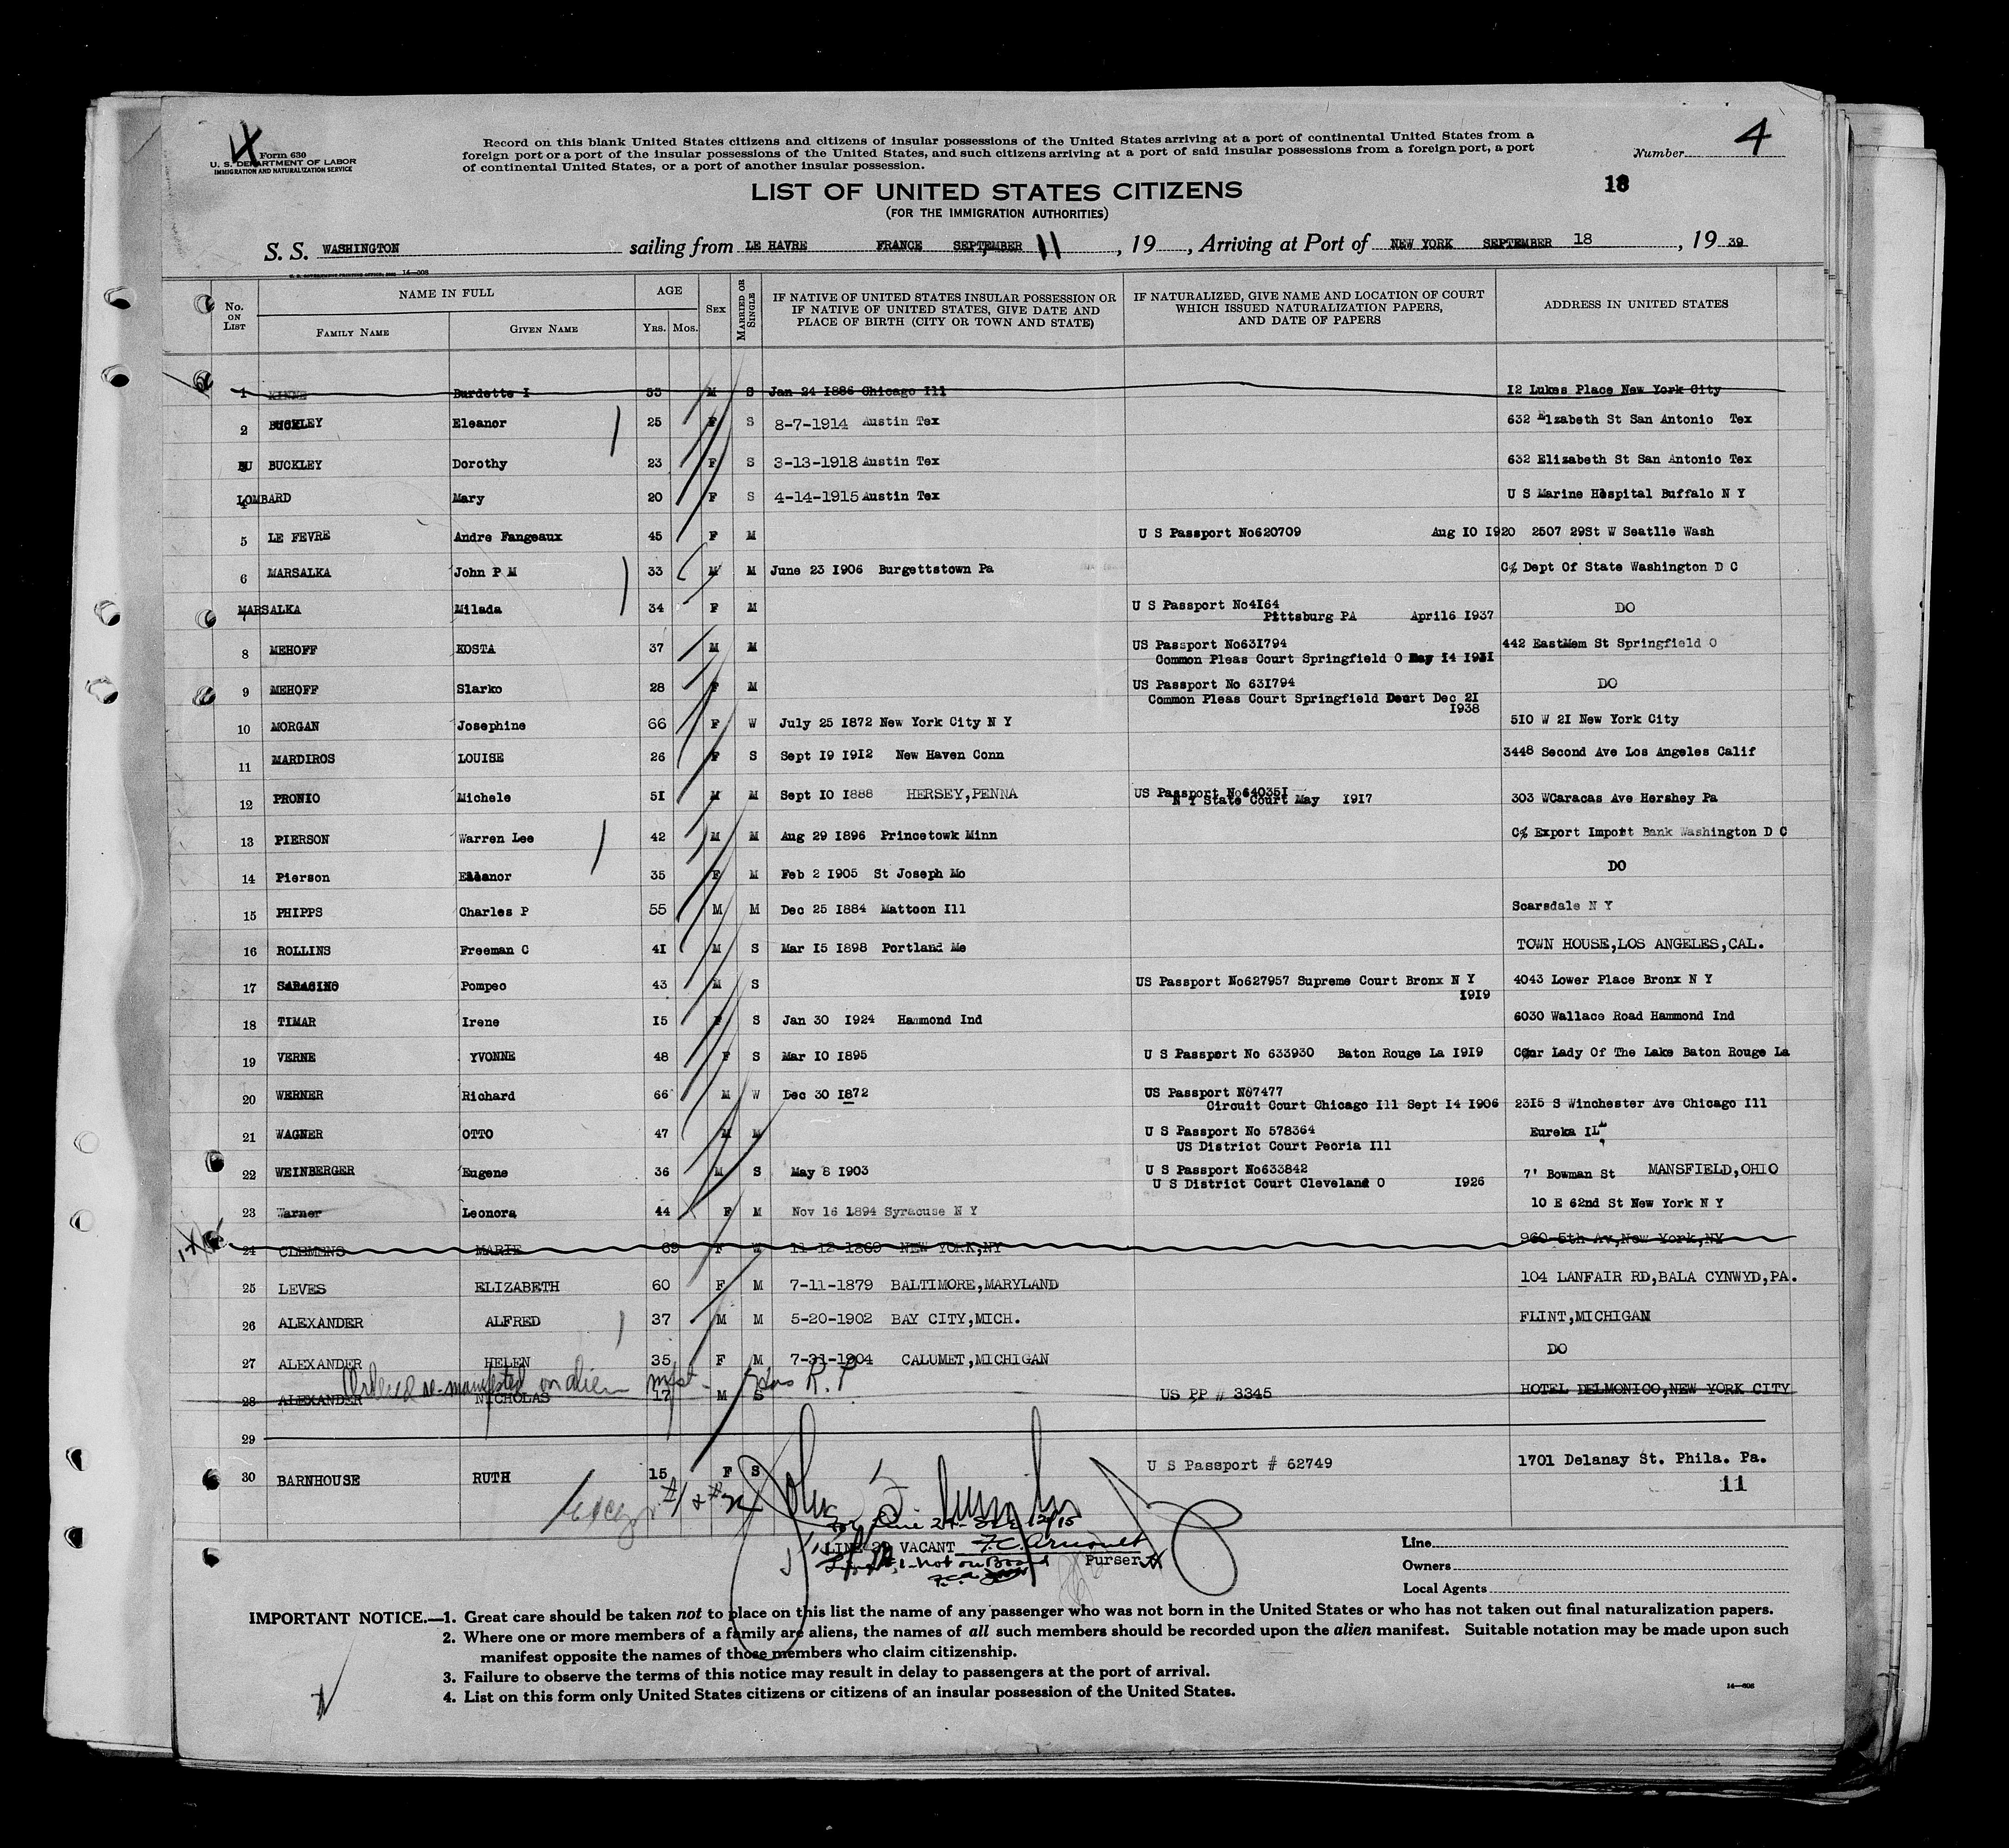 4
Form 630
U. S. DEPARTMENT OF LABOR
IMMIGRATION AND NATURALIZATION SERVICE
Record on this blank United States citizens and citizens of insular possessions of the United States arriving at a port of continental United States from a
foreign port or a port of the insular possessions of the United States, and such citizens arriving at a port of said insular possessions from a foreign port, a port
of continental United States, or a port of another insular possession.
Number 4
18
LIST OF UNITED STATES CITIZENS
(FOR THE IMMIGRATION AUTHORITIES)
S. S. WASHINGTON sailing from LE HAVRE FRANCE SEPTEMBER 11, 19 , Arriving at Port of NEW YORK SEPTEMBER 18, 19 39
No. ON LIST NAME IN FULL AGE SEX MARRIED OR SINGLE IF NATIVE OF UNITED STATES INSULAR POSSESSION OR IF NATIVE OF UNITED STATES, GIVE DATE AND PLACE OF BIRTH (CITY OR TOWN AND STATE) IF NATURALIZED, GIVE NAME AND LOCATION OF COURT WHICH ISSUED NATURALIZATION PAPERS, AND DATE OF PAPERS ADDRESS IN UNITED STATES
FAMILY NAME GIVEN NAME YRS. MOS.
1 Burdette I 53 M S Jan 24 1886 Chicago Ill 12 Lukes Place New York City
2 BUCKLEY Eleanor 25 F S 8-7-1914 Austin Tex 632 Elzabeth St San Antonio Tex
BUCKLEY Dorothy 23 F S 3-13-1918 Austin Tex 632 Elizabeth St San Antonio Tex
4 LOMBARD Mary 20 F S 4-14-1915 Austin Tex U S Marine Hospital Buffalo N Y
5 LE FEVRE Andre Fangeaux 45 F M U S Passport No620709 Aug 10 1920 2507 29St W Seatlle Wash
6 MARSALKA John P M 33 M M June 23 1906 Burgettstown Pa C/o Dept Of State Washington D C
7 MARSALKA Milada 34 F M U S Passport No4164 DO
Pittsburg PA April6 1937
8 MEHOFF KOSTA 37 M M US Passport No631794 442 EastMem St Springfield O
Common Pleas Court Springfield O May 14 1931
9 MEHOFF Slarko 28 F M US Passport No 631794 DO
Common Pleas Court Springfield Dec 21
1938
10 MORGAN Josephine 66 F W July 25 1872 New York City N Y 510 W 21 New York City
11 MARDIROS LOUISE 26 F S Sept 19 1912 New Haven Conn 3448 Second Ave Los Angeles Calif
12 PRONIO Michele 51 M M Sept 10 1888 HERSEY,PENNA US Passport No640351 303 WCaracas Ave Hershey Pa
N Y State Court May 1917
13 PIERSON Warren Lee 42 M M Aug 29 1896 Princetowk Minn C/o Export Import Bank Washington D C
14 Pierson Eleanor 35 F M Feb 2 1905 St Joseph Mo DO
15 PHIPPS Charles P 55 M M Dec 25 1884 Mattoon Ill Scarsdale N Y
16 ROLLINS Freeman C 41 M S Mar 15 1898 Portland Me TOWN HOUSE,LOS ANGELES,CAL.
17 SARACINO Pompeo 43 M S US Passport No627957 Supreme Court Bronx N Y 4043 Lower Place Bronx N Y
1919
18 TIMAR Irene 15 F S Jan 30 1924 Hammond Ind 6030 Wallace Road Hammond Ind
19 VERNE YVONNE 48 F S Mar 10 1895 U S Passport No 633930 Baton Rouge La 1919 Our Lady Of The Lake Baton Rouge La
20 WERNER Richard 66 M W Dec 30 1872 US Passport No7477
Circuit Court Chicago Ill Sept 14 1906 2315 S Winchester Ave Chicago Ill
21 WAGNER OTTO 47 M M U S Passport No 578364 Eureka IL
US District Court Peoria Ill
22 WEINBERGER Eugene 36 M S May 8 1903 U S Passport No633842 7' Bowman St MANSFIELD,OHIO
U S District Court Cleveland O 1926
23 Warner Leonora 44 F M Nov 16 1894 Syracuse N Y 10 E 62nd St New York N Y
24 CLEMENS MARIE 69 F W 11-12-1869 NEW YORK,NY 960 5th Av,New York,NY
25 LEVES ELIZABETH 60 F M 7-11-1879 BALTIMORE,MARYLAND 104 LANFAIR RD,BALA CYNWYD,PA.
26 ALEXANDER ALFRED 37 M M 5-20-1902 BAY CITY,MICH. FLINT,MICHIGAN
27 ALEXANDER HELEN 35 F M 7-31-1904 CALUMET,MICHIGAN DO
Ordered re-manifested on alien mfst - Has R.P
28 ALEXANDER NICHOLAS 17 M S US PP # 3345 HOTEL DELMONICO,NEW YORK CITY
29
30 BARNHOUSE RUTH 15 F S U S Passport # 62749 1701 Delanay St. Phila. Pa.
11
LINE 29 VACANT F.C. Arnoult
#1 - Not on Board Purser
Line
Owners
Local Agents
IMPORTANT NOTICE.—1. Great care should be taken not to place on this list the name of any passenger who was not born in the United States or who has not taken out final naturalization papers.
2. Where one or more members of a family are aliens, the names of all such members should be recorded upon the alien manifest. Suitable notation may be made upon such
manifest opposite the names of those members who claim citizenship.
3. Failure to observe the terms of this notice may result in delay to passengers at the port of arrival.
4. List on this form only United States citizens or citizens of an insular possession of the United States.
14—608